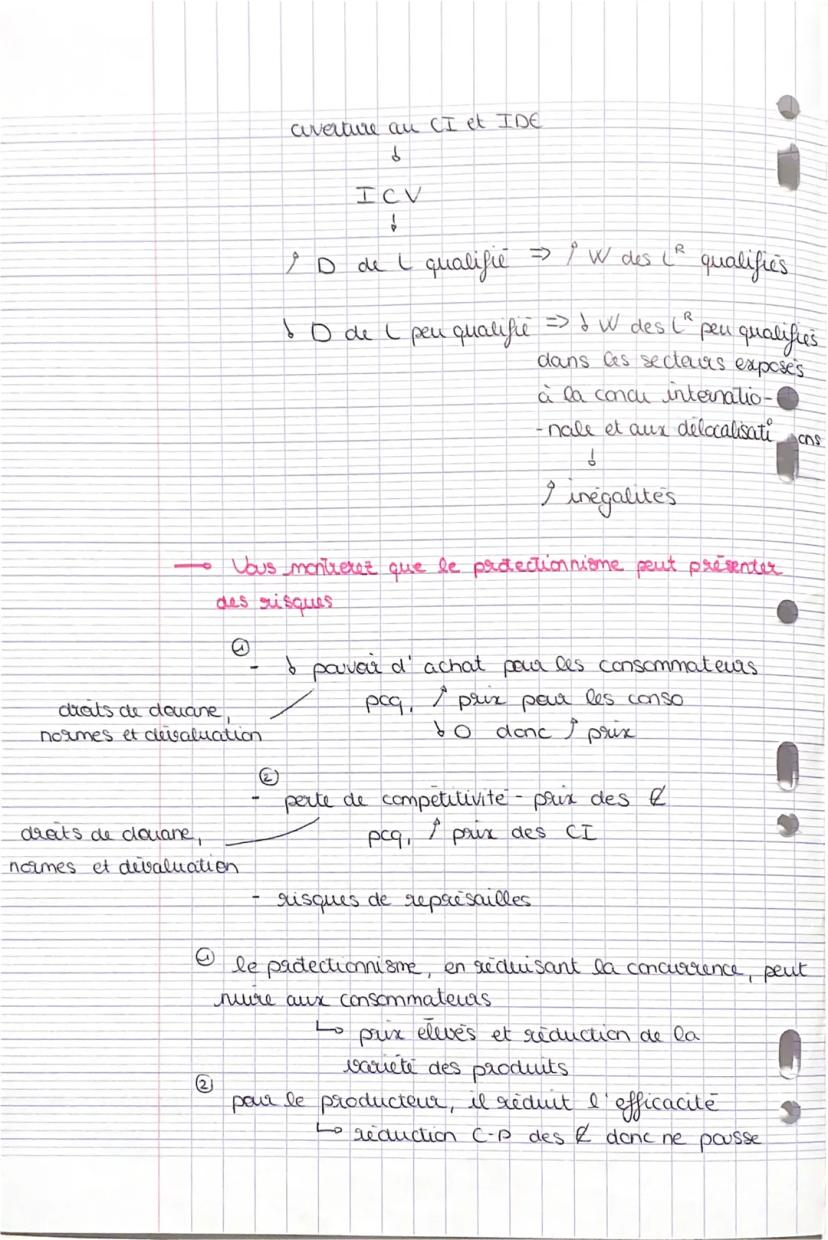 ouverture au CI et IDE
↓
ICV
↓
↑ D de L qualifié => ↑ W des Lᴿ qualifiés
↓ D de L peu qualifié => ↓ W des Lᴿ peu qualifiés
dans les secteurs exposés
à la concu internatio-
-nale et aux délocalisati ons
↓
↑ inégalités
→ Vous montrerez que le protectionnisme peut présenter
des risques
①
- ↓ pouvoir d'achat pour les consommateurs
droits de douane,
normes et dévaluation
pcq, ↑ prix pour les conso
↓ O donc ↑ prix
②
- perte de compétitivité - prix des €
droits de douane,
normes et dévaluation
pcq, ↑ prix des CI
- risques de représailles
① le protectionnisme, en réduisant la concurrence, peut
nuire aux consommateurs
↳ prix élevés et réduction de la
variété des produits
② pour le producteur, il réduit l'efficacité
↳ réduction C-P des € donc ne pousse